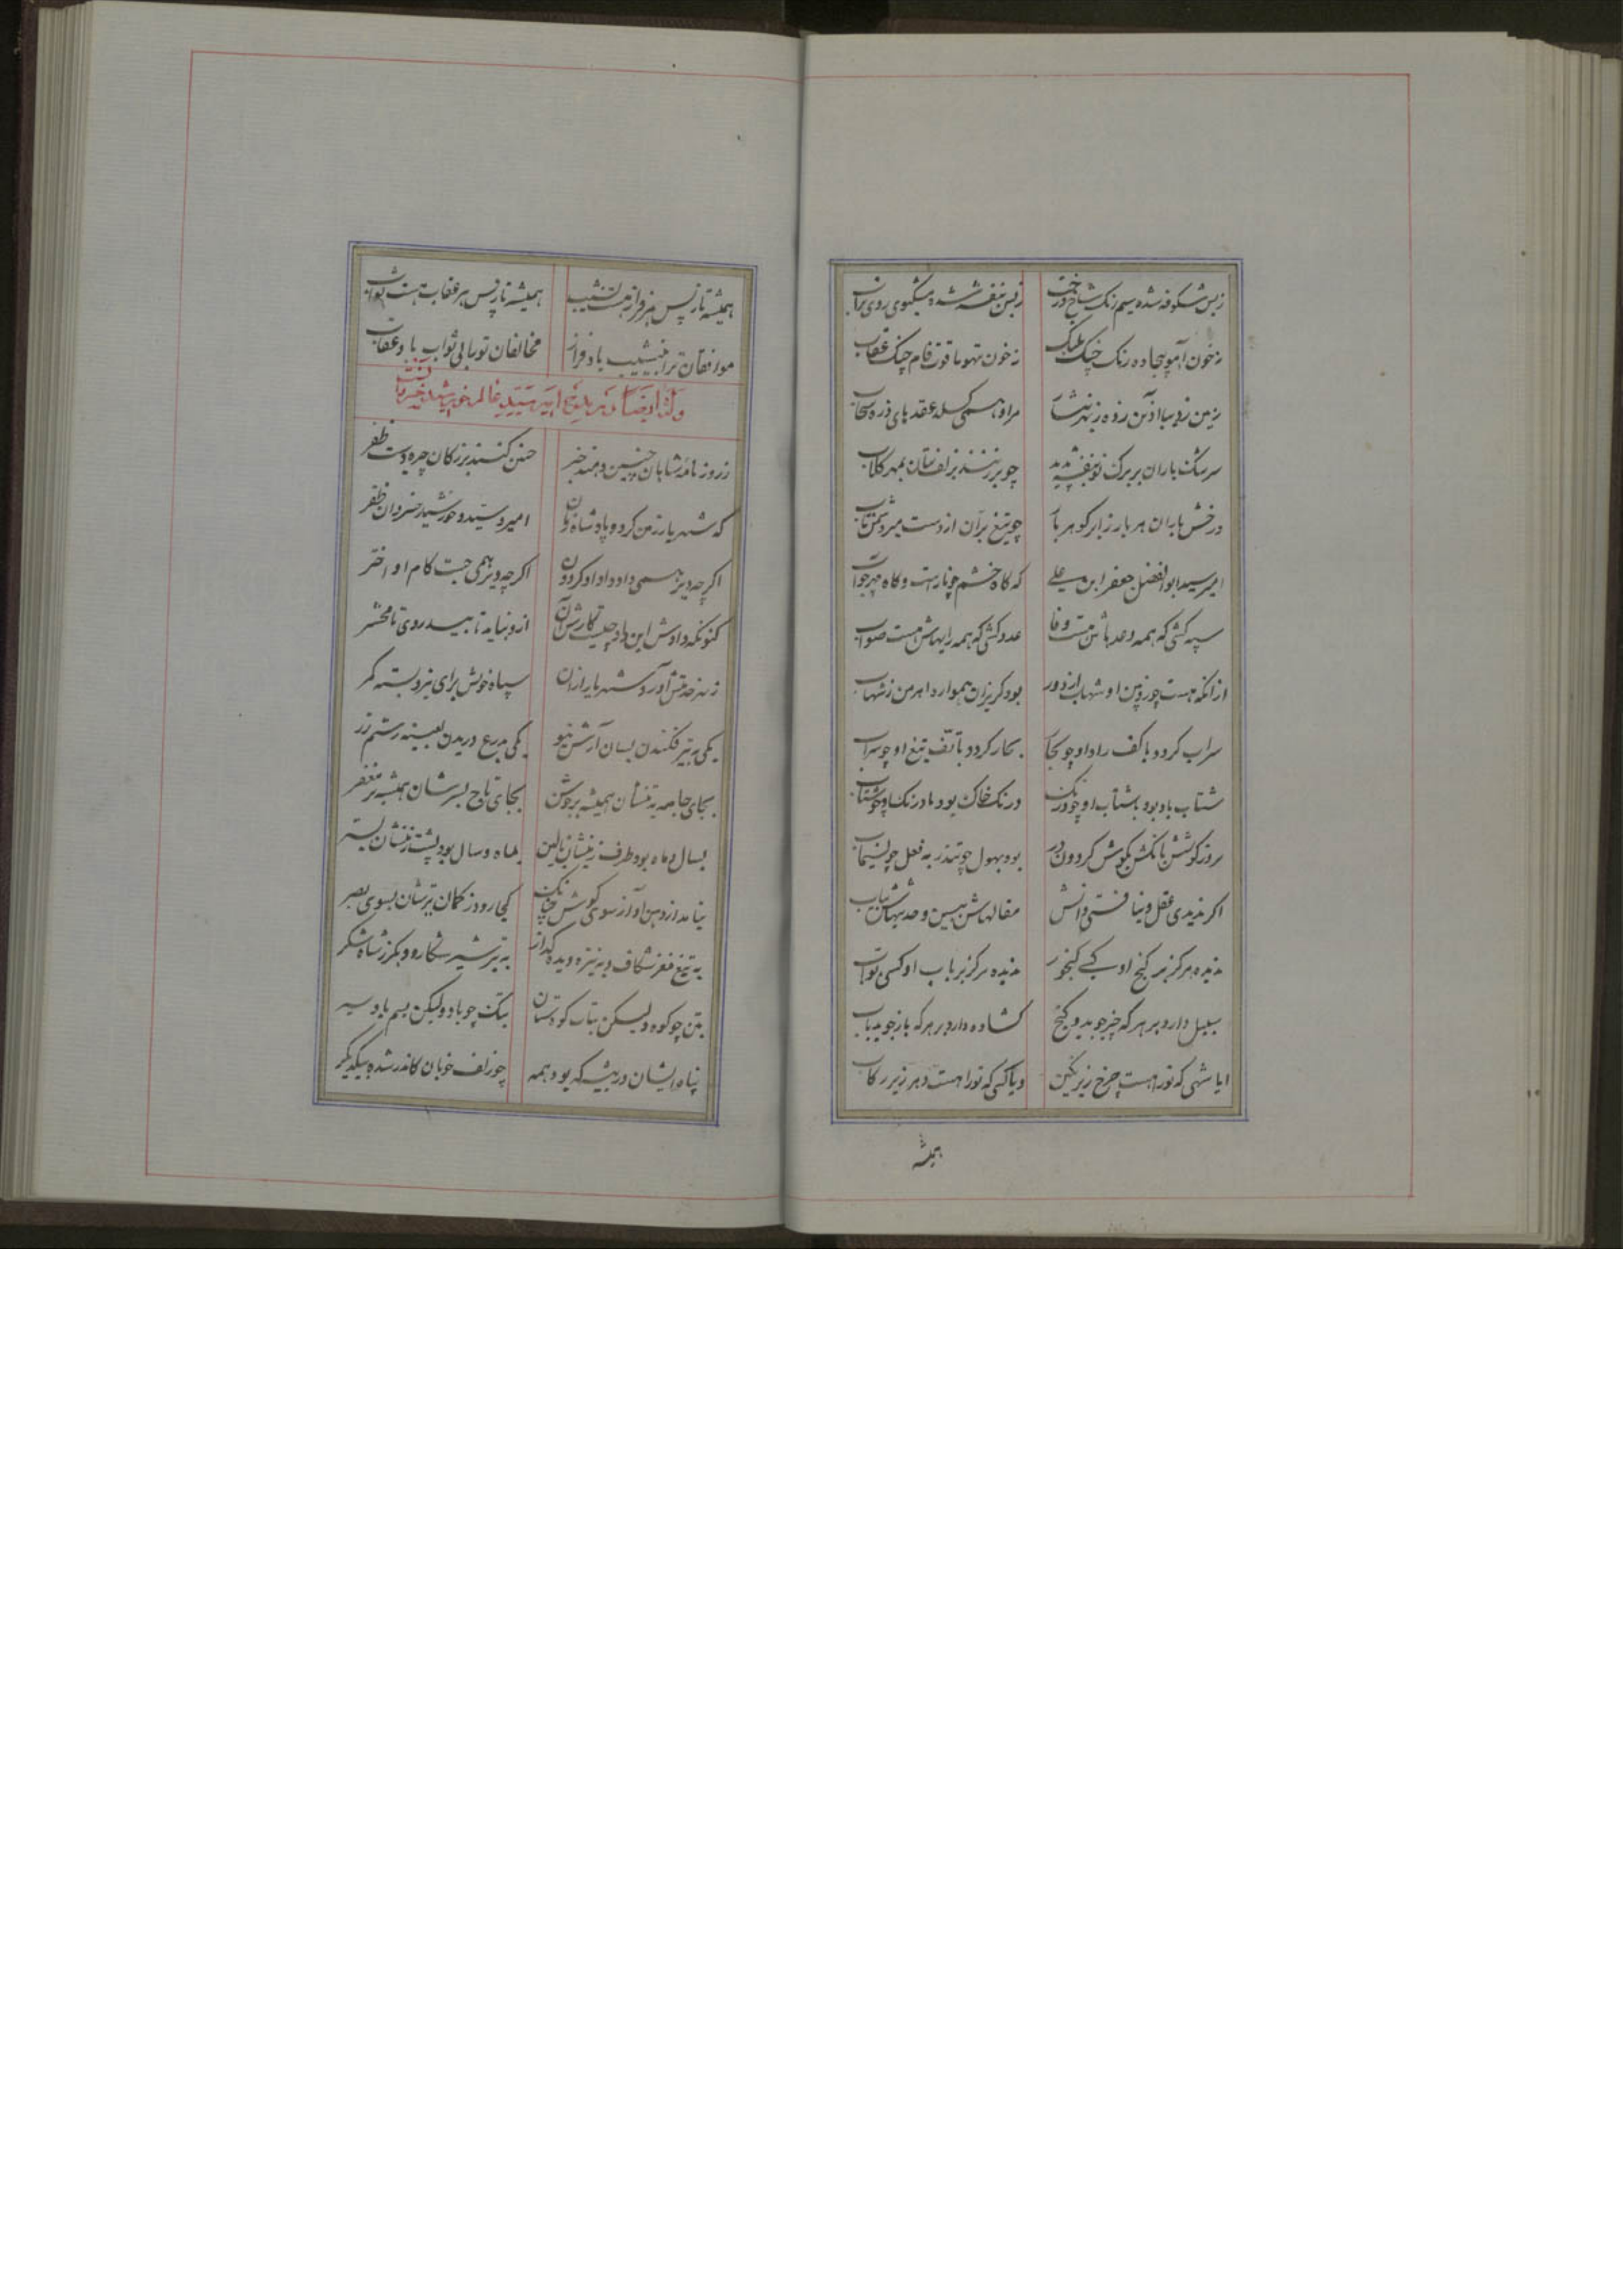 زبس شکوفه شده سیم رنک شاخ درخت زبس بنفشه شده مشکبوی روی تراب
زخون آهو بیجاده رنک چنک پلنک زخون تیهو یاقوت فام چنک عقاب
زمین زدیبا
سرشک باران بر برک نو بنفشه پدید چو بر زنند بزلف بتان بمهر کلاب
درخش باران هر بار ز ابر کوهر بار چو تیغ بران از دست میر دشمن تاب
امیر سید ابوالفضل جعفر ابن علی که کاه خشم چو نارست و کاه مهر چو آب
سپه کشی که همه وعدهاش هست وفا عدو کشی که همه رایهاش هست صواب
ازانکه هست چو زوبین او شهاب از دور بود کریزان هموار اهرمن زشهاب
سراب کردد با کف راد او چو بحار بحار کردد با تف تیغ او چو سراب
شتاب باد بود با شتاب او چو درنک درنک خاک بود با درنک او چو شتاب
بروز کوشش بانکش بکوش کردون در بود بهول چو تندر بفعل چو
اگر ندیدی عقل و نیافتی دانش مقالهاش ببین و حدیثهاش بیاب
ندیده هرکز بر کنج او کسی کنجور ندیده هرکز بر باب او کسی بواب
سبیل دارد بر هر که چیز جوید کنج کشاده دارد بر هر که بار جوید باب
ایا شهی که تو را هست چرخ زیر نکین و یا کسی که تو را هست دهر زیر رکاب
همیشه
همیشه تا زپس هر فراز هست نشیب همیشه تا زپس هر عقاب هست ثواب
موافقان ترا بی نشیب باد فراز مخالفان تو را بی ثواب باد عقاب
وله ایضا در مدح امیر سید
زروزنامه شاهان چنین دهند خبر چنین کنند بزرکان چو یافت ظفر
که شهریار زمین کرد و پادشاه زمان امیر و سید و خورشید خسروان
اکر چه دیر همی داد داد او کردون اکر چه دیر همی جست کام او اختر
کنونکه دادش این داد از او نیابد تابید روی تا محشر
زبهر خدمتش آورد شهریار اران سپاه خویش برای نبرد بسته کمر
یکی به تیر فکندن بسان آرش نیو یکی بدرع دریدن رستم زر
بجای جامه به تنشان همیشه بر جوشن بجای تاج بسرشان همیشه بر مغفر
بسال و ماه بود طرف بالین بماه و سال بود پشت بستر
نیاید از دهن آواز سوی کوش چنانک کجا رود ز کمان تیرشان بسوی بصر
به تیغ مغز شکاف و به نیزه دیده کداز به تیر شیر شکار و بکرز شاه شکر
بتن چو کوه ولیکن بتک چو باد ولیکن
پناه ایشان در بیشه که بود همه چو زلف خوبان کاندر شده بیکدیکر